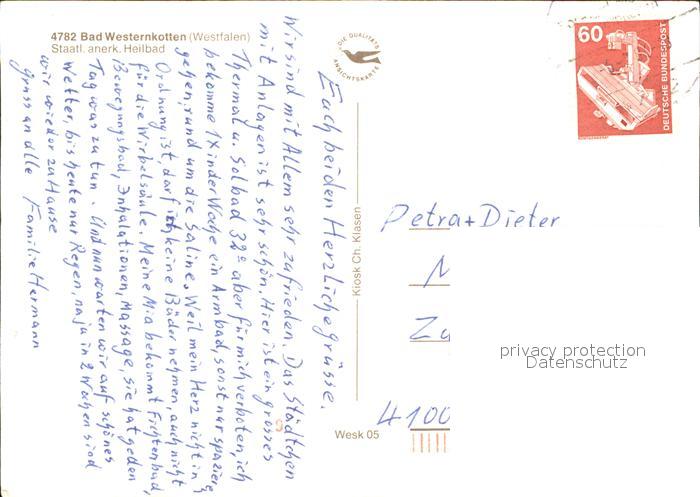 4782 Bad Westernkotten (Westfalen)
Staatl. anerk. Heilbad
DIE QUALITÄTS
ANSICHTSKARTE
60
DEUTSCHE BUNDESPOST
Euch beiden Herzliche grüsse.
Wir sind mit Allem sehr zufrieden. Das Städtchen
mit Anlagen ist sehr schön. Hier ist ein grosses
Thermal u. Solbad 32° aber für mich verboten, ich
bekomme 1X in der Woche ein Armbad, sonst nur spazieren
gehen, rund um die Saline. Weil mein Herz nicht in
Ordnung ist, darf ich keine Bäder nehmen, auch nicht
für die Wirbelsäule. Meine Mia bekommt Fichtenbad,
Bewegungsbad, Inhalationen, Massage, sie hat jeden
Tag was zu tun. Und nun warten wir auf schönes
Wetter, bis heute nur Regen, na ja in 2 Wochen sind
wir wieder zu Hause
gruss an alle Familie Hermann
Kiosk Ch. Klasen
Wesk 05
Petra + Dieter
N
Zu
4100
privacy protection
Datenschutz